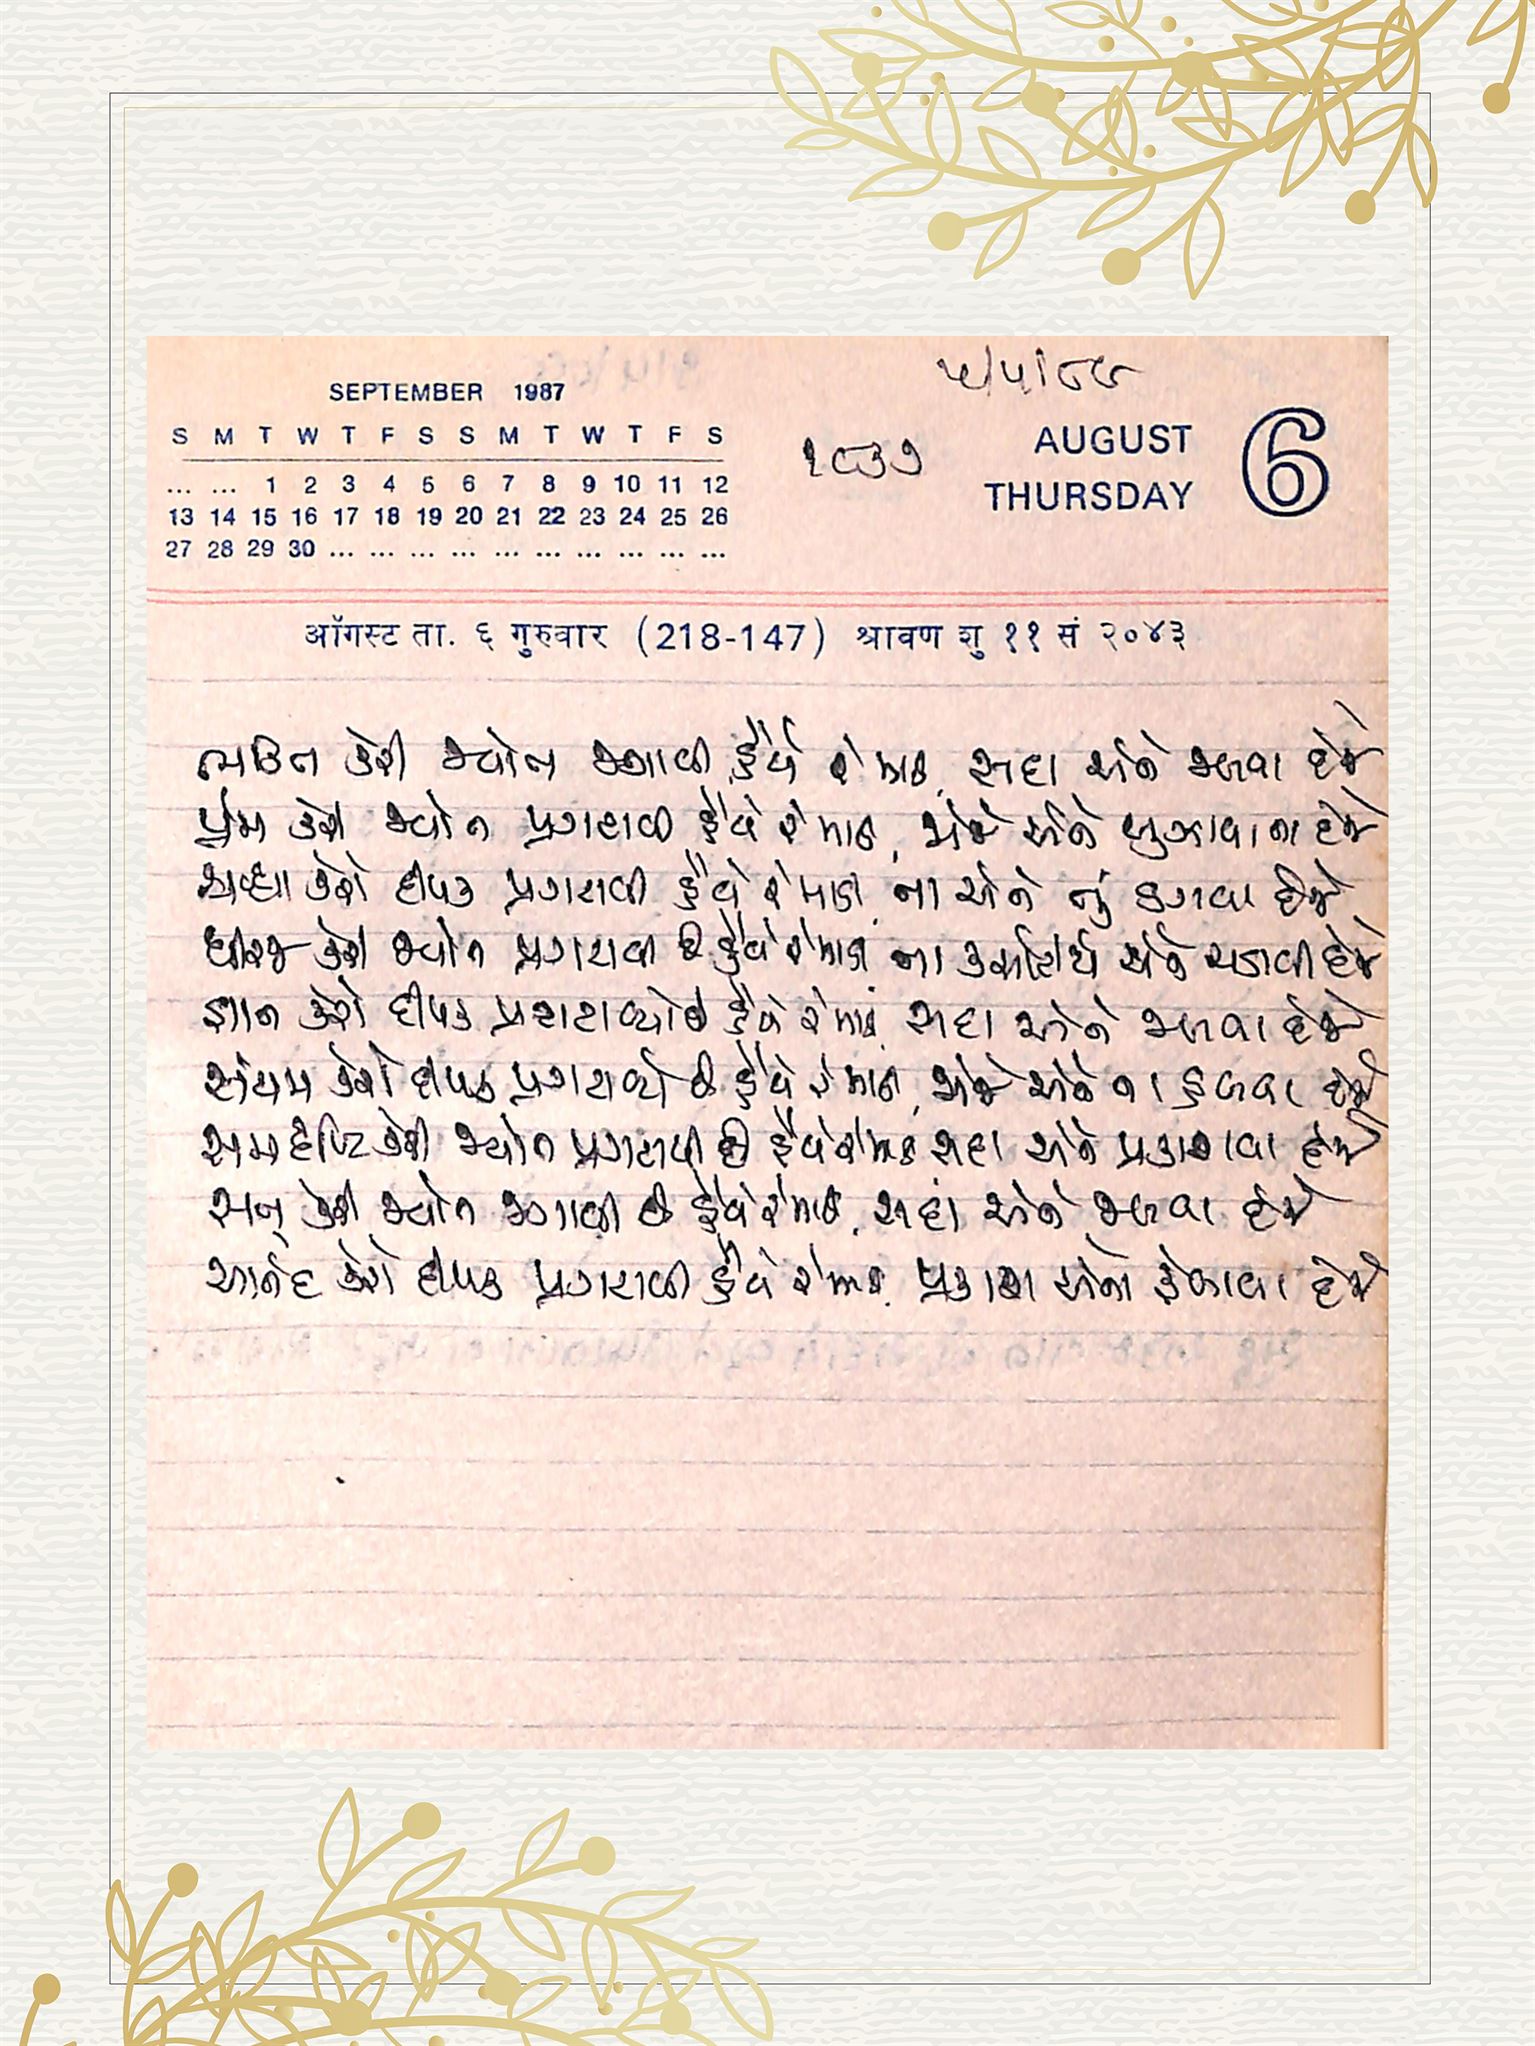 ૫/૫/૮૮
SEPTEMBER 1987
S M T W T F S S M T W T F S
... ... 1 2 3 4 5 6 7 8 9 10 11 12
13 14 15 16 17 18 19 20 21 22 23 24 25 26
27 28 29 30 ... ... ... ... ... ... ... ... ... ...
૧૮૩૭
AUGUST
THURSDAY
6
ऑगस्ट ता. ६ गुरुवार (218-147) श्रावण शु ११ सं २०४३
ભક્તિ કેરી જ્યોત જગાવી હૈયે રે માડી, સદા એને જલવા દેજે
પ્રેમ કેરી જ્યોત પ્રગટાવી હૈયે રે માડી, જોજે એને બુઝાવા ના દેજે
શ્રદ્ધા કેરો દીપક પ્રગટાવી હૈયે રે માડી, ના એને તું ડગવા દેજે
ધીરજ કેરી જ્યોત પ્રગટાવી છે હૈયે રે માડી, ના એને દેજે
જ્ઞાન કેરો દીપક પ્રગટાવ્યો છે હૈયે રે માડી, સદા એને જલવા દેજે
સંયમ કેરો દીપક પ્રગટાવ્યો છે હૈયે રે માડી, જોજે એને ના હલવા દેજે
સમદૃષ્ટિ કેરી જ્યોત પ્રગટાવી છે હૈયે રે માડી, સદા એને પ્રકાશવા દેજે
સત્ કેરી જ્યોત જગાવી છે હૈયે રે માડી, સદા એને જલવા દેજે
આનંદ કેરો દીપક પ્રગટાવી હૈયે રે માડી, પ્રકાશ એનો ફેલાવા દેજે